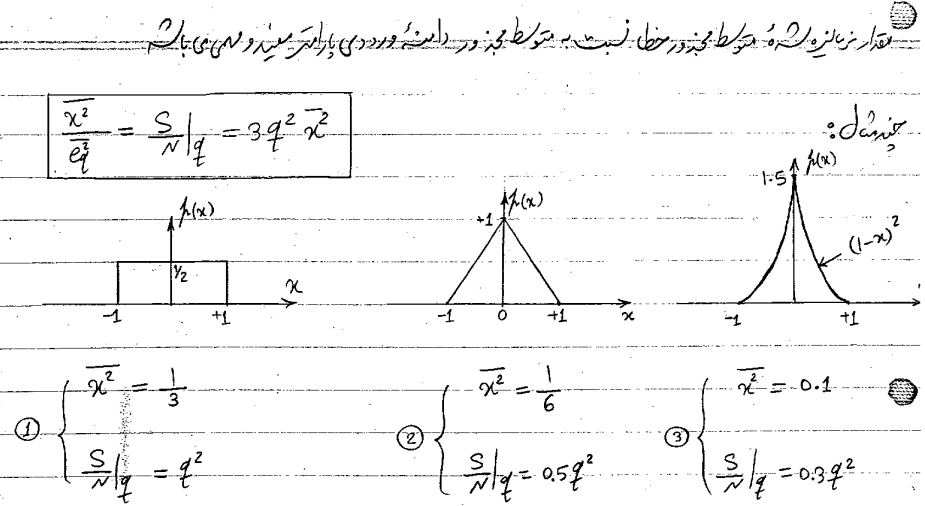 مقدار نرمالیزه شدهٔ متوسط مجذور خطا نسبت به متوسط مجذور دامنهٔ ورودی پارامتر مفید و مهمی می باشد
چند مثال:
x̄² / ēq² = S/N|q = 3q² x̄²
p(x)
1/2
x
-1
+1
p(x)
+1
-1
0
+1
x
p(x)
1.5
(1-x)²
-1
+1
① x̄² = 1/3
S/N|q = q²
② x̄² = 1/6
S/N|q = 0.5q²
③ x̄² = 0.1
S/N|q = 0.3q²